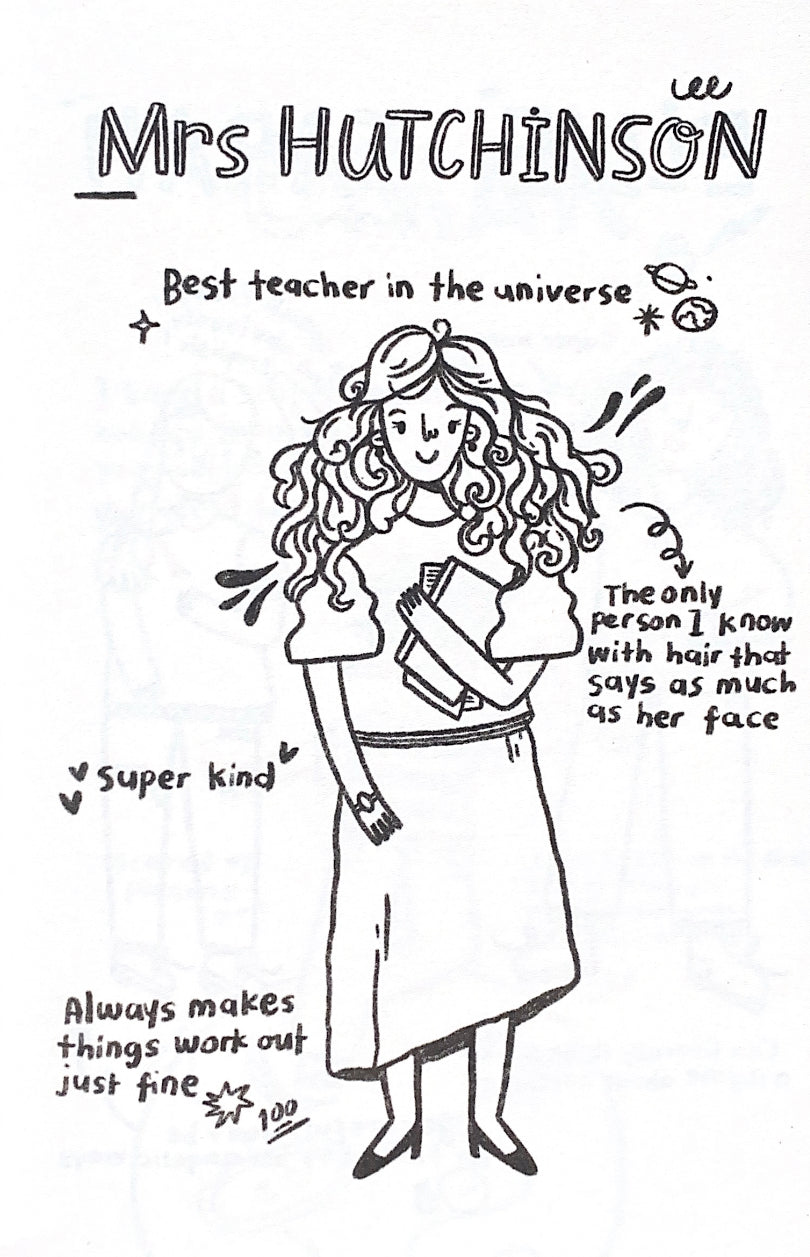 Mrs HUTCHINSON
Best teacher in the universe
The only
person I know
with hair that
says as much
as her face
super kind
Always makes
things work out
just fine
100